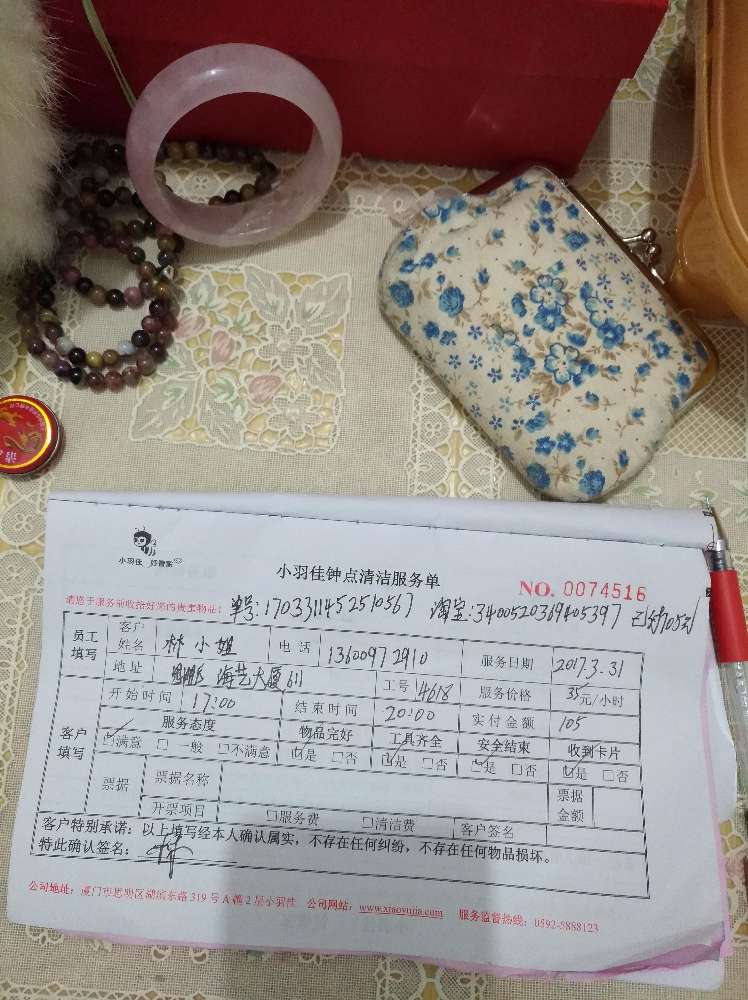 小羽佳 好管家
小羽佳钟点清洁服务单
NO. 0074516
请您于服务前收拾好您的贵重物品:
单号:1703311452510567 淘宝:3400520369405397 已付105元
员工填写 客户姓名 林小姐 电话 13600972910 服务日期 2017.3.31
地址 海艺大厦611 工号 4618 服务价格 35元/小时
开始时间 17:00 结束时间 20:00 实付金额 105
客户填写 服务态度 物品完好 工具齐全 安全结束 收到卡片
☑满意 □一般 □不满意 ☑是 □否 ☑是 □否 ☑是 □否 ☑是 □否
票据 票据名称 票据金额
开票项目 □服务费 □清洁费 客户签名
客户特别承诺:以上填写经本人确认属实,不存在任何纠纷,不存在任何物品损坏。
特此确认签名:林
公司地址:厦门市思明区湖滨东路319号A栋2层小羽佳 公司网站:www.xiaoyujia.com 服务监督热线:0592-5888123